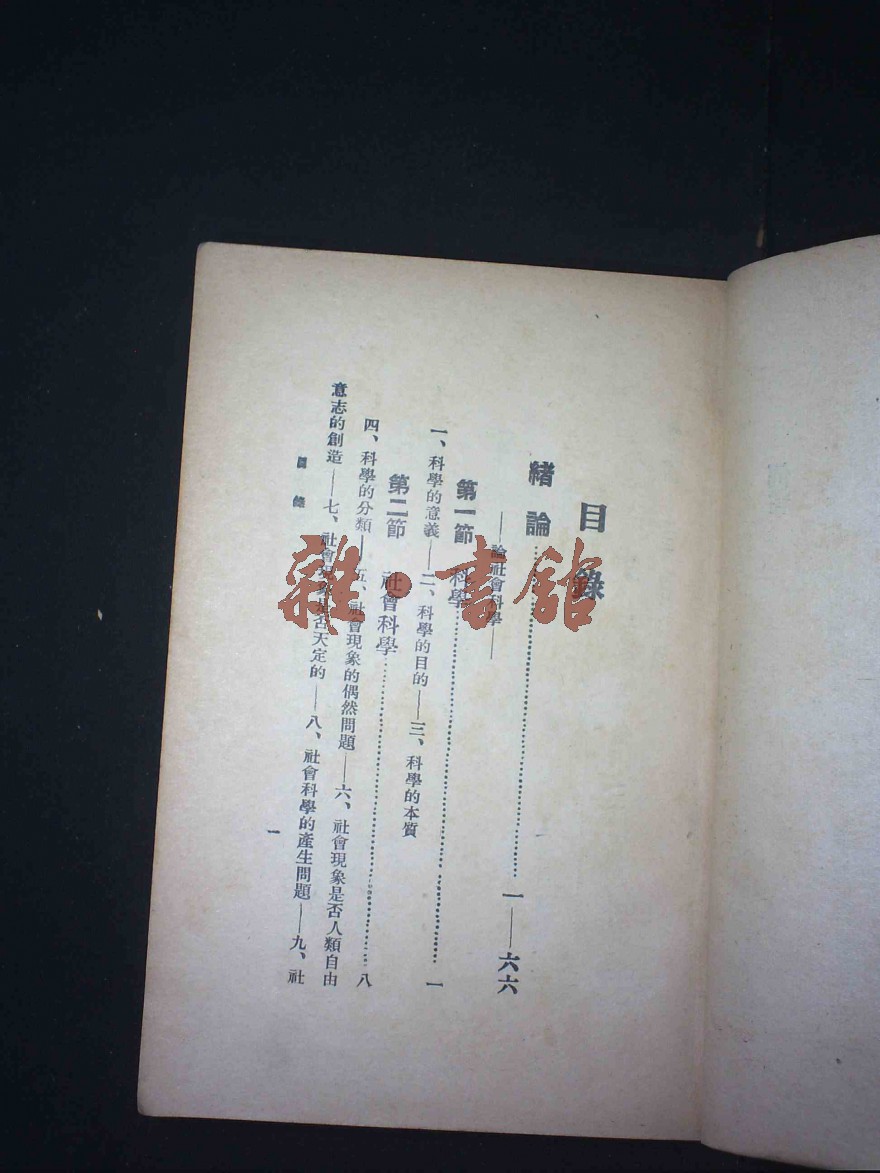 目錄
緒論……一——六六
——論社會科學——
第一節 科學……一
一、科學的意義——二、科學的目的——三、科學的本質
第二節 社會科學……八
四、科學的分類——五、社會現象的偶然問題——六、社會現象是否人類自由
意志的創造——七、社會現象是否天定的——八、社會科學的產生問題——九、社
目錄
一
雜·書館